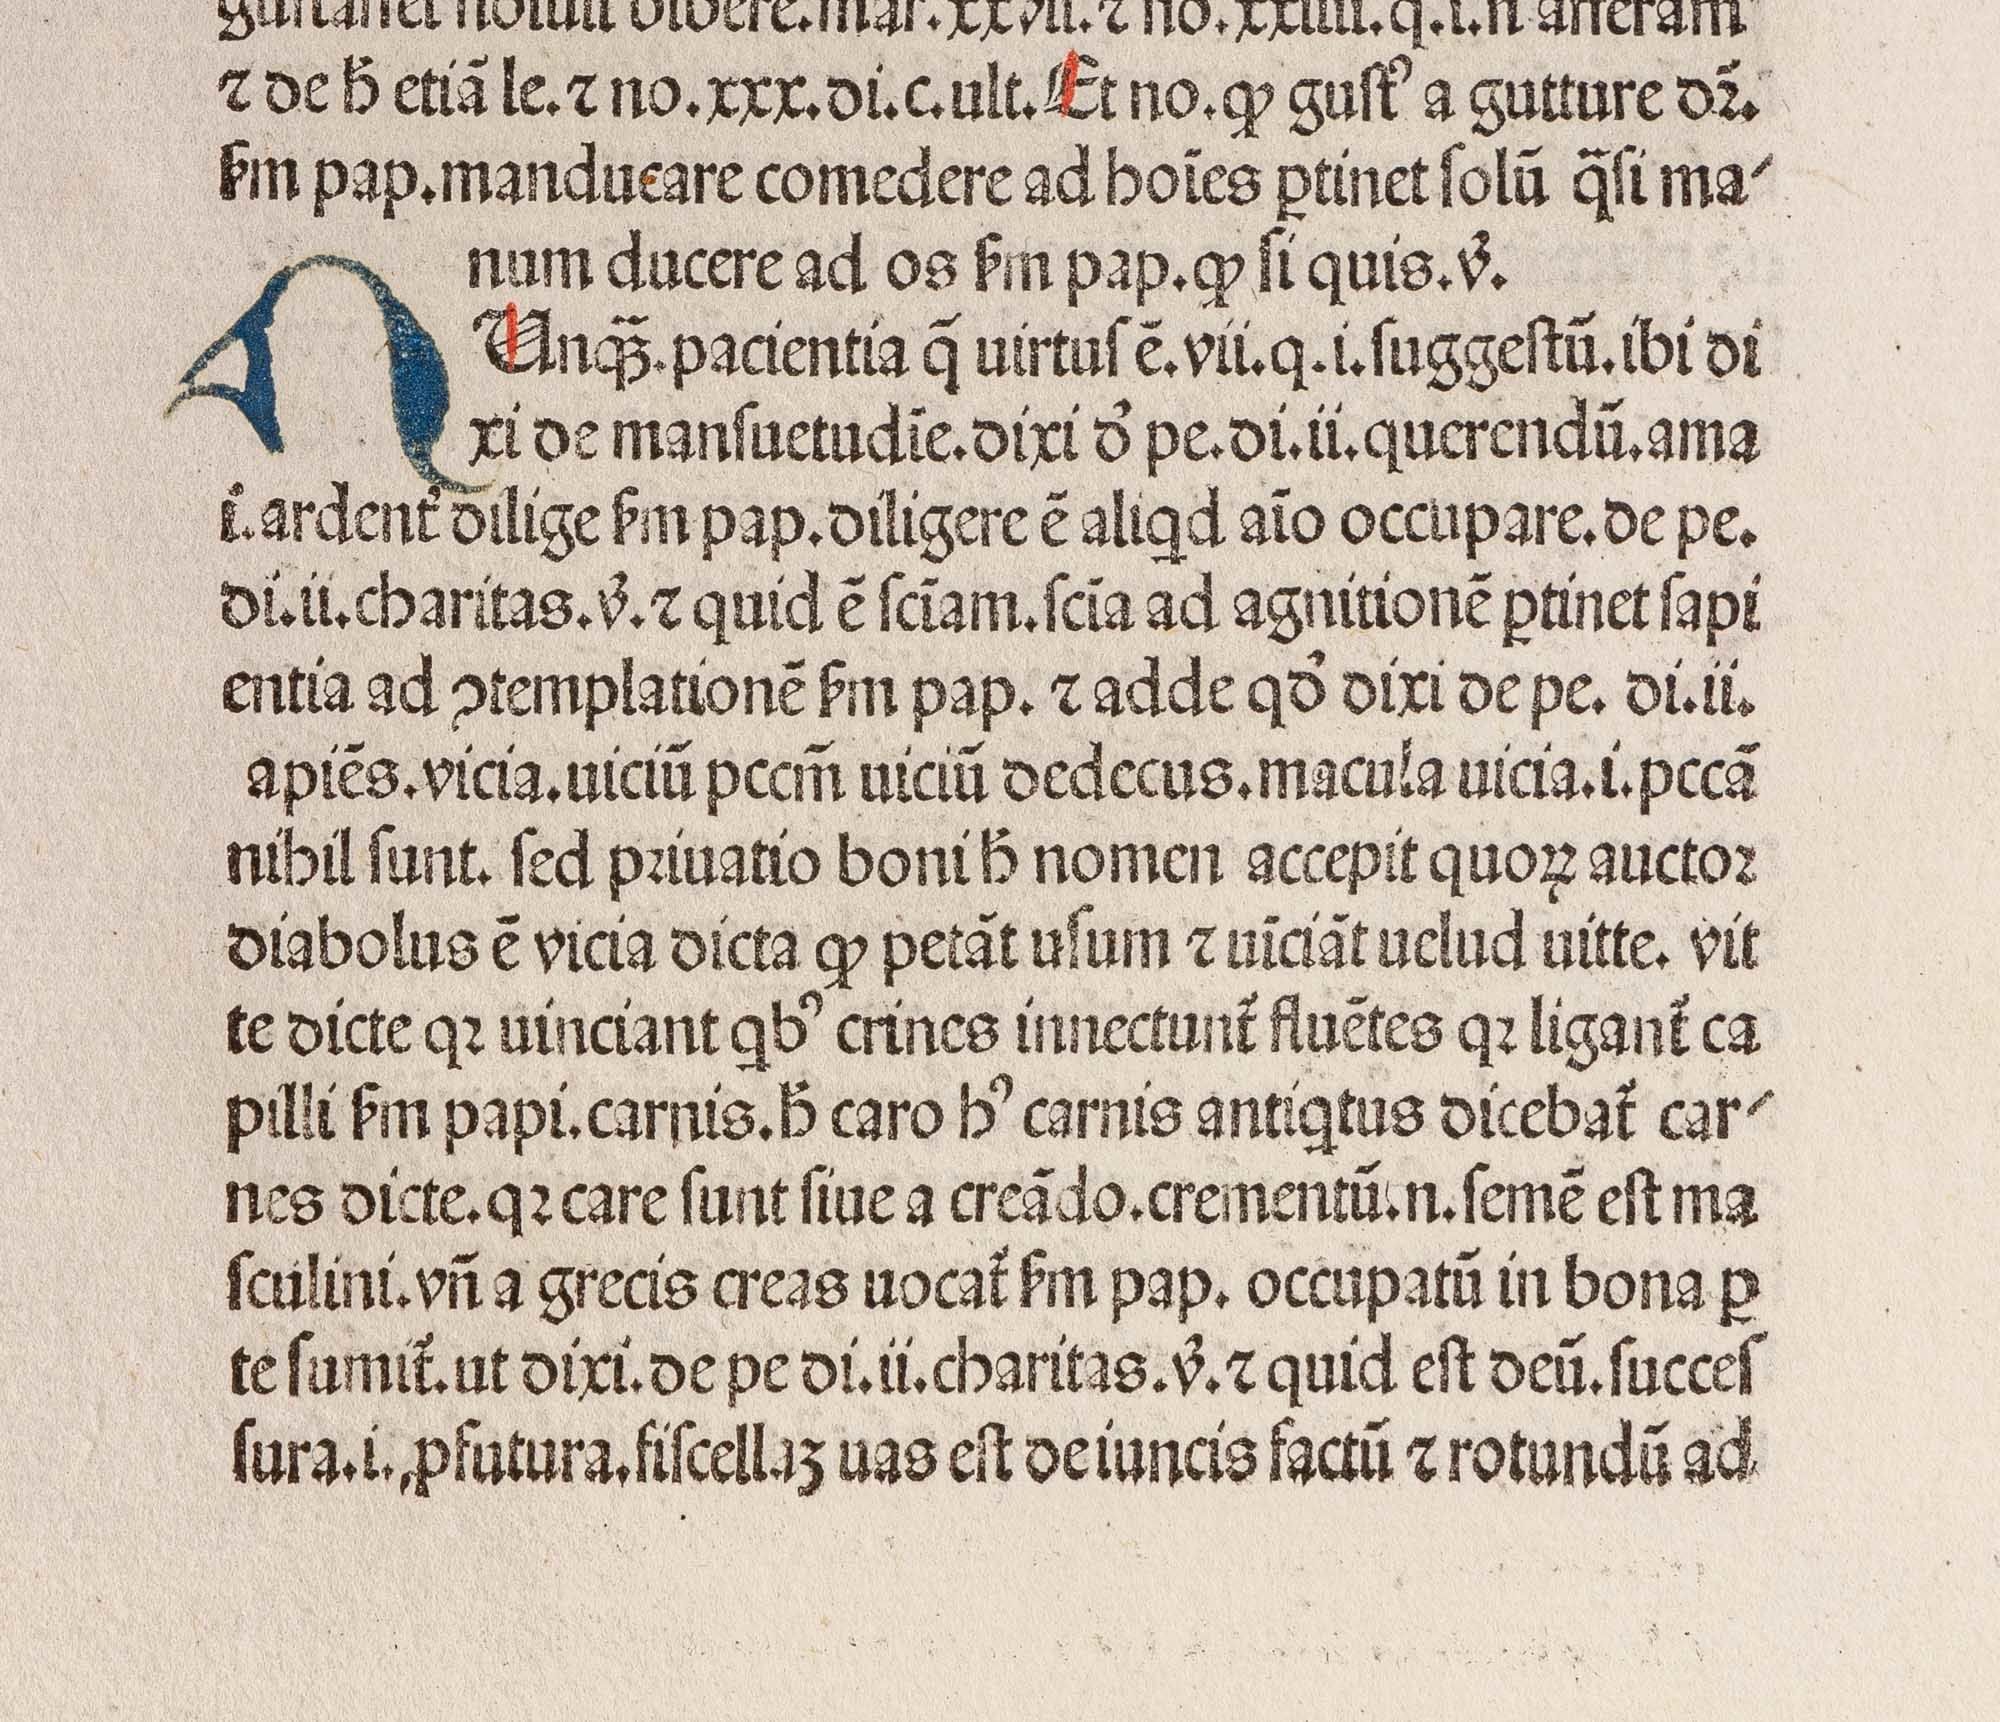 gustasset noluit bibere. mar. xxvii. ⁊ no. xxiiii. q. i. n̄ afferam
⁊ de h̄ etiā le. ⁊ no. xxx. di. c. ult. Et no. ꝙ gustꝰ a gutture dr̄.
ſm pap. manducare comedere ad hoīes ꝑtinet ſolū q̄ſi ma-
num ducere ad os ſm pap. ꝙ ſi quis. v̓.
N Unqͣꝫ. pacientia q̄ uirtuſ ē. vii. q. i. ſuggeſtū. ibi di
xi de manſuetudīe. dixi d̓ pe. di. ii. querendū. ama
i. ardent̓ dilige ſm pap. diligere ē aliqd aīo occupare. de pe.
di. ii. charitas. v̓. ⁊ quid ē ſcīam. ſcīa ad agnitionē ꝑtinet ſapi
entia ad ꝯtemplationē ſm pap. ⁊ adde qd̓ dixi de pe. di. ii.
apiēs. vicia. uiciū pccm̄ uiciū dedecus. macula uicia. i. pccā
nihil ſunt. ſed pꝛiuatio boni h̄ nomen accepit quoꝝ auctoꝛ
diabolus ē vicia dicta ꝙ petāt uſum ⁊ uīciāt uelud uitte. vit
te dicte qꝛ uinciant qbꝰ crines innectunt̓ fluētes qꝛ ligant̓ ca
pilli ſm papi. carnis. h̄ caro hꝰ carnis antiqtus dicebat̓ car-
nes dicte. qꝛ care ſunt ſiue a creādo. crementū. n. ſemē eſt ma
ſculini. vn̄ a grecis creas uocat̓ ſm pap. occupatū in bona ꝑ
te ſumit̓. ut dixi. de pe di. ii. charitas. v̓. ⁊ quid eſt deū. ſucceſ
ſura. i. ꝓfutura. fiſcellaꝫ uas eſt de iuncis factū ⁊ rotundū ad